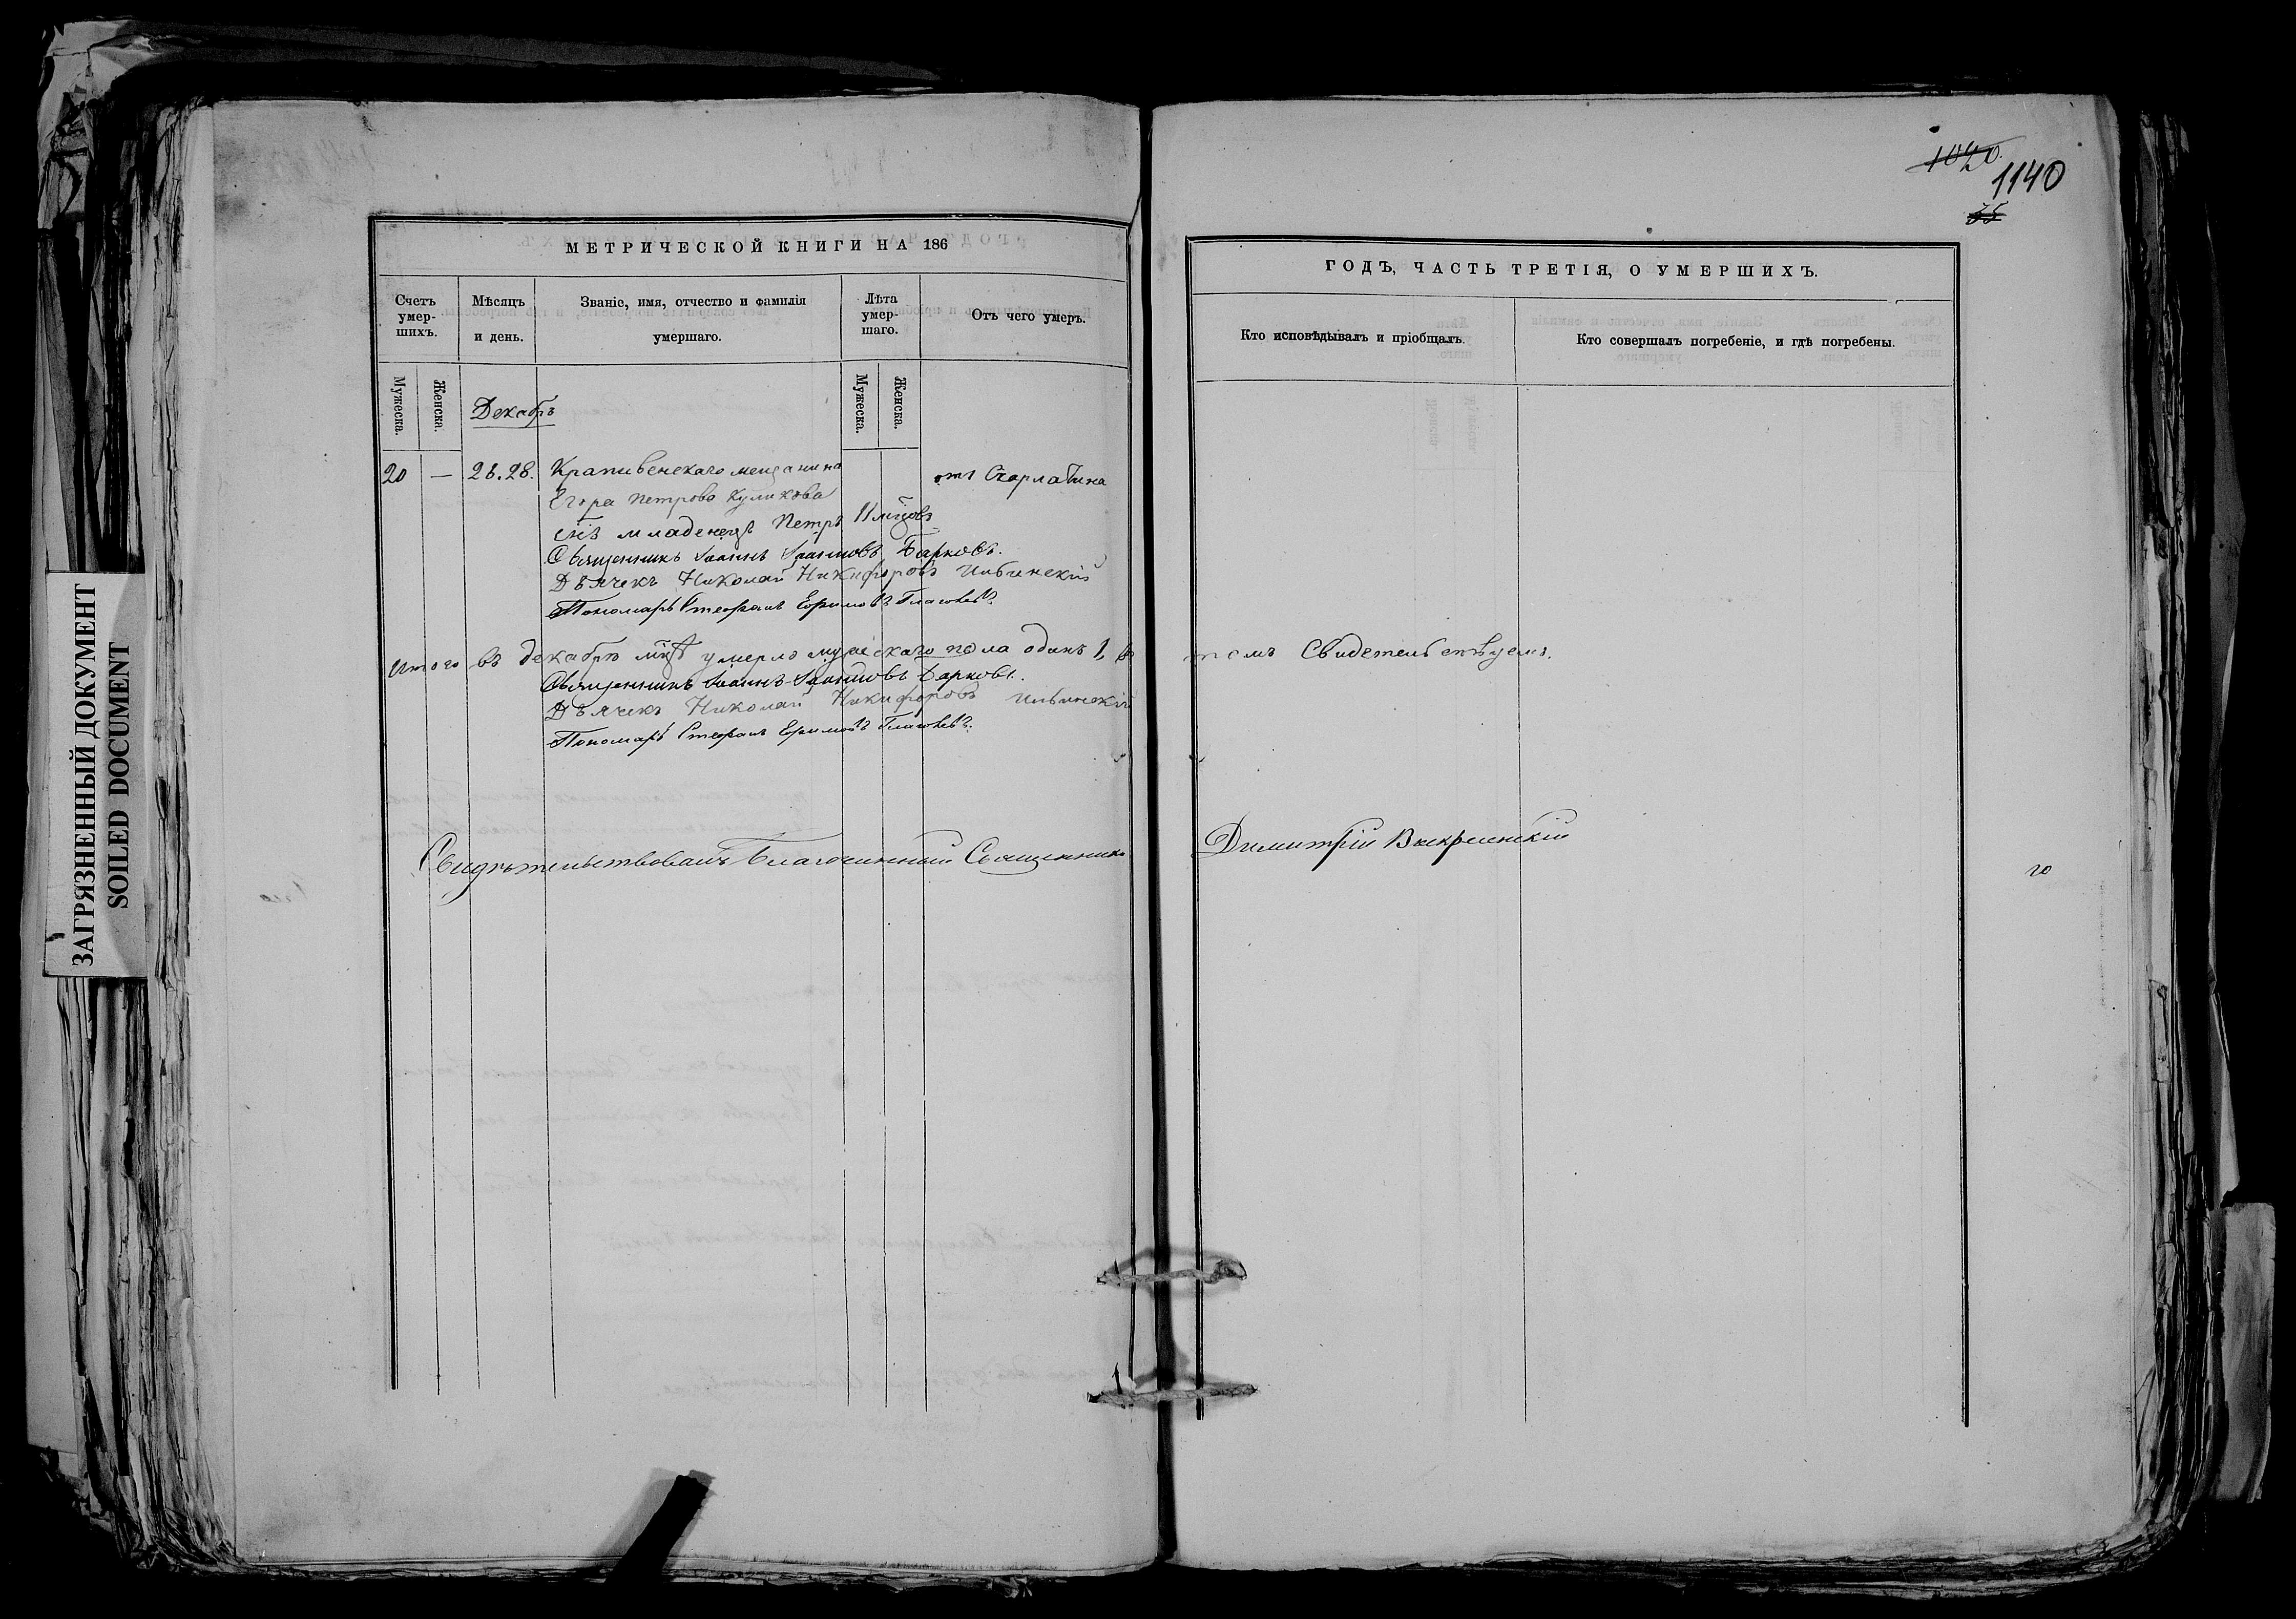 ЗАГРЯЗНЕННЫЙ ДОКУМЕНТ
SOILED DOCUMENT
МЕТРИЧЕСКОЙ КНИГИ НА 186
Счетъ умер-шихъ.
Мѣсяцъ и день.
Званіе, имя, отчество и фамилія умершаго.
Лѣта умер-шаго.
Отъ чего умеръ.
Мужеска.
Женска.
Декабрь
Мужеска.
Женска.
20 — 26. 28. Крапивенскаго мещанина отъ Скарлатина
Егора Петрова Куликова
снъ младенецъ Петръ 11 мцовъ
Священникъ Іоаннъ Іоанновъ Барковъ.
Дѣячекъ Николай Никифоровъ Ильинскій
Пономарь Стефанъ Ефимовъ Глаголевъ.
Итого въ декабрѣ мцѣ умерло мужескаго пола одинъ 1, въ
Священникъ Іоаннъ Іоанновъ Барковъ.
Дѣячекъ Николай Никифоровъ Ильинскій
Пономарь Стефанъ Ефимовъ Глаголевъ.
Свидѣтельствовалъ Благочинный Священникъ
1040.
1140
35
ГОДЪ, ЧАСТЬ ТРЕТІЯ, О УМЕРШИХЪ.
Кто исповѣдывалъ и пріобщалъ.
Кто совершалъ погребеніе, и гдѣ погребены.
томъ Свидетельствуемъ.
Димитрій Воскресенскій
го